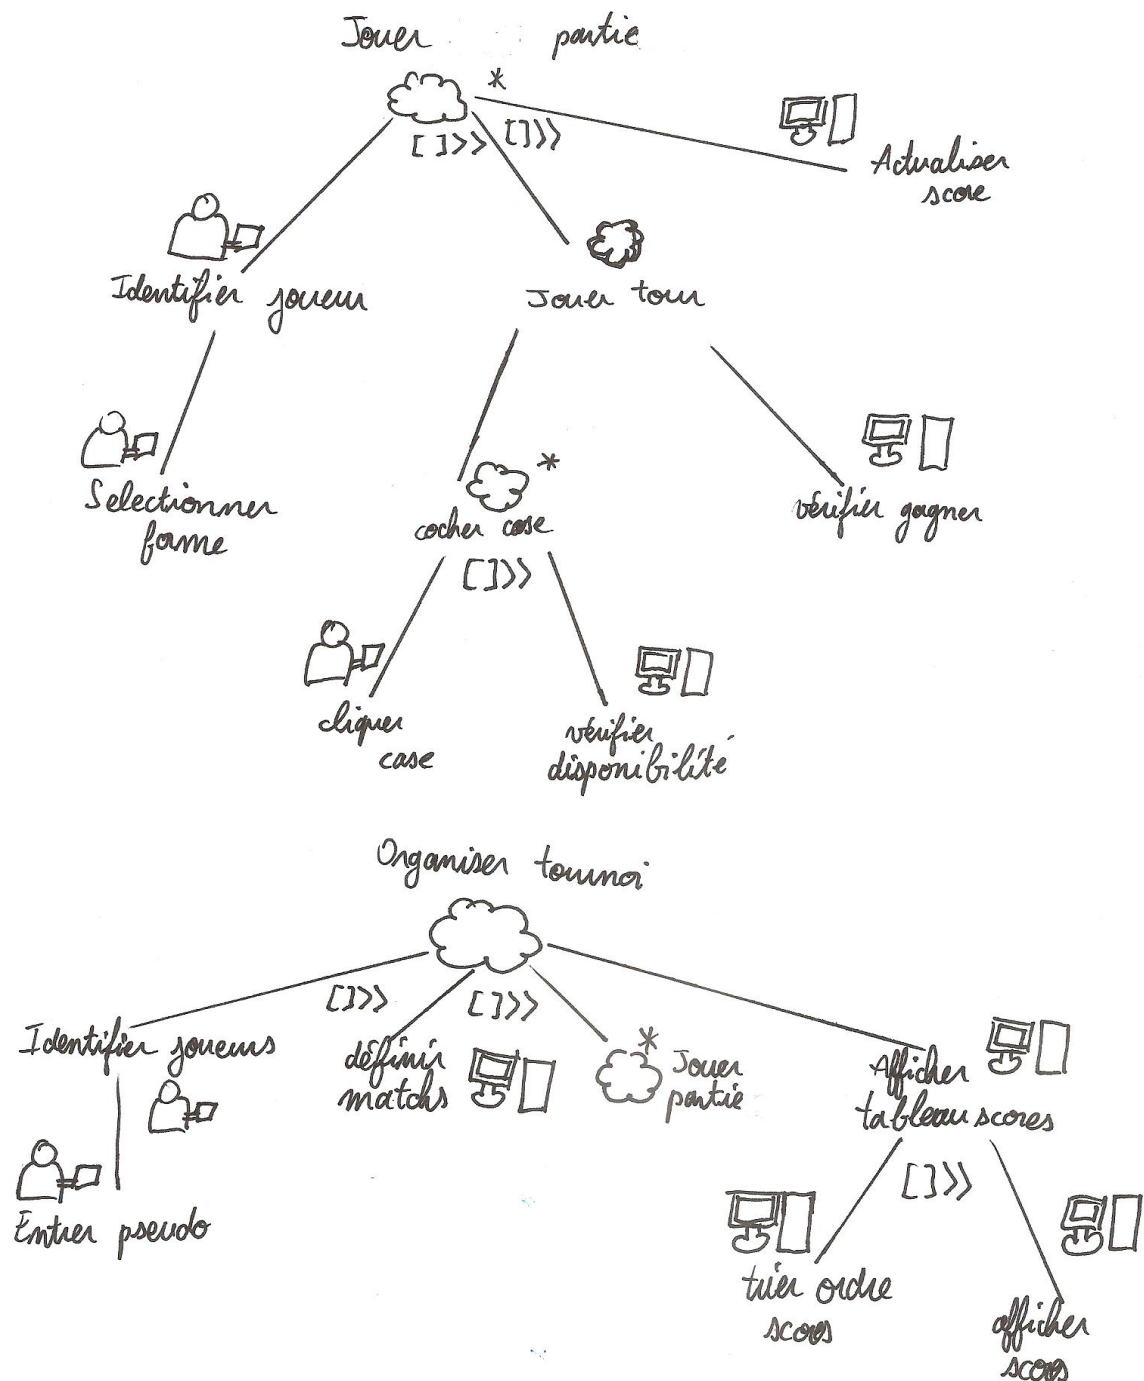 Jouer partie
*
[]>> []>>
Actualiser
score
Identifier joueur
Jouer tour
Selectionner
forme
*
cocher case
vérifier gagner
[]>>
cliquer
case
vérifier
disponibilité
Organiser tournoi
[]>> []>>
Identifier joueurs
définir
matchs
*
Jouer
partie
Afficher
tableau scores
[]>>
Entrer pseudo
trier ordre
scores
afficher
scores